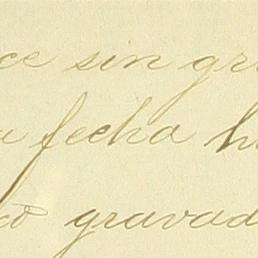 ce sin gr
a fecha h
gravad